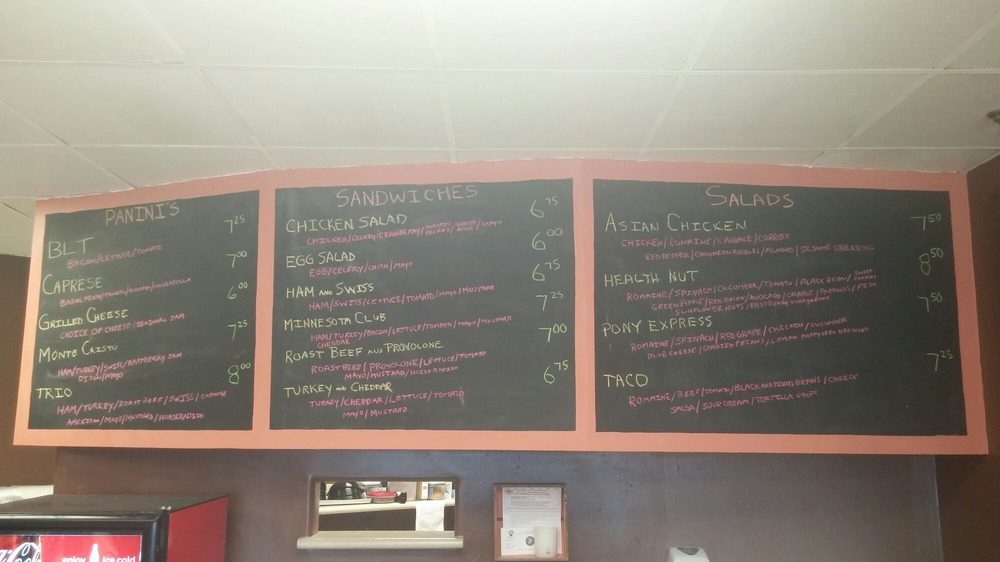 PANINI'S
BLT 7 25
BACON/LETTUCE/TOMATO
CAPRESE 7 00
BASIL PESTO/TOMATO/AVOCADO/MOZZARELLA
GRILLED CHEESE 6 00
CHOICE OF CHEESE/SEASONAL JAM
MONTE CRISTO 7 25
HAM/TURKEY/SWISS/RASPBERRY JAM
DIJON/MAYO
TRIO 8 00
HAM/TURKEY/ROAST BEEF/SWISS/CHEDDAR
AMERICAN/MAYO/MUSTARD/HORSERADISH
SANDWICHES
CHICKEN SALAD 6 75
CHICKEN/CELERY/CRANBERRY/ APPLE/MAYO
EGG SALAD 6 00
EGG/CELERY/ONION/MAYO
HAM AND SWISS 6 75
HAM/SWISS/LETTUCE/TOMATO/MAYO/MUSTARD
MINNESOTA CLUB 7 25
HAM/TURKEY/BACON/LETTUCE/TOMATO/MAYO/MUSTARD
CHEDDAR
ROAST BEEF AND PROVOLONE 7 00
ROAST BEEF/PROVOLONE/LETTUCE/TOMATO
MAYO/MUSTARD/HORSERADISH
TURKEY AND CHEDDAR 6 75
TURKEY/CHEDDAR/LETTUCE/TOMATO
MAYO/MUSTARD
SALADS
ASIAN CHICKEN 7 50
CHICKEN/ROMAINE/CABBAGE/CARROTS
RED PEPPER/CHOW MEIN NOODLES/ALMOND/SESAME DRESSING
HEALTH NUT 8 50
ROMAINE/SPINACH/CUCUMBER/TOMATO/BLACK BEAN/
GREEN APPLE/RED ONION/AVOCADO/CARROT/ALMONDS/FETA
SUNFLOWER NUTS/RASPBERRY VINAIGRETTE
PONY EXPRESS 7 50
ROMAINE/SPINACH/RED GRAPE/CHICKEN/CUCUMBER
BLUE CHEESE/CANDIED PECANS/LEMON POPPYSEED DRESSING
TACO 7 25
ROMAINE/BEEF/TOMATO/BLACK AND PINTO BEANS/CHEESE
SALSA/SOUR CREAM/TORTILLA CHIPS
enjoy ice cold